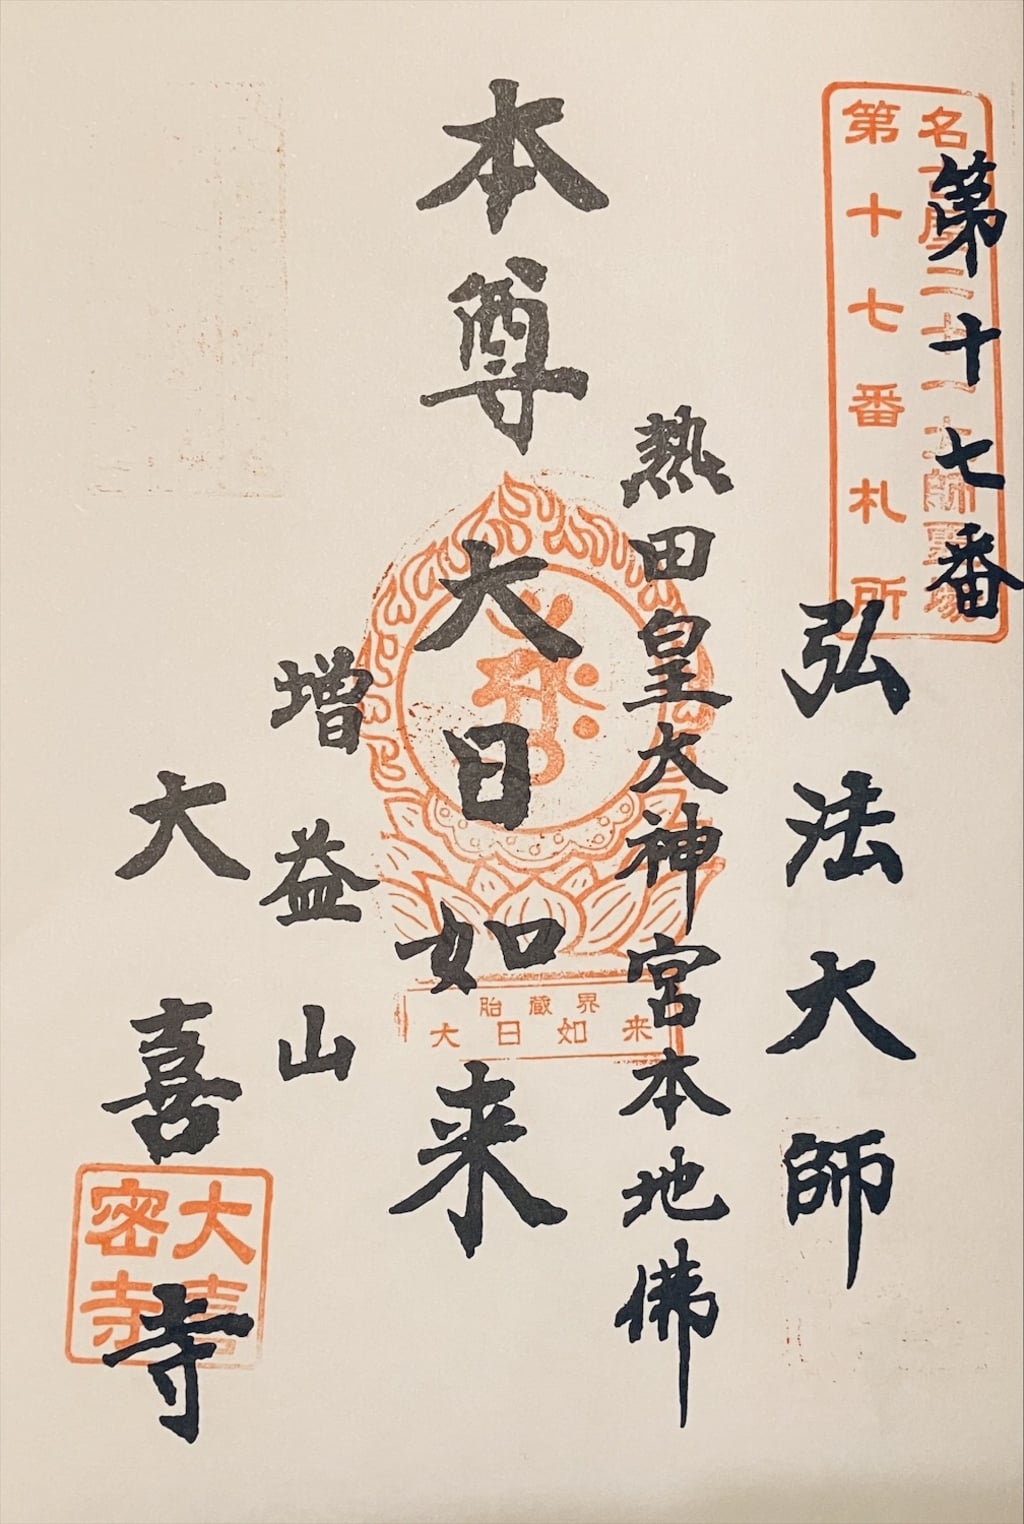 名古屋二十一大師霊場
第十七番札所
第十七番
弘法大師
熱田皇大神宮本地佛
本尊
大日如来
胎蔵界
大日如来
増益山
大喜寺
大喜
密寺